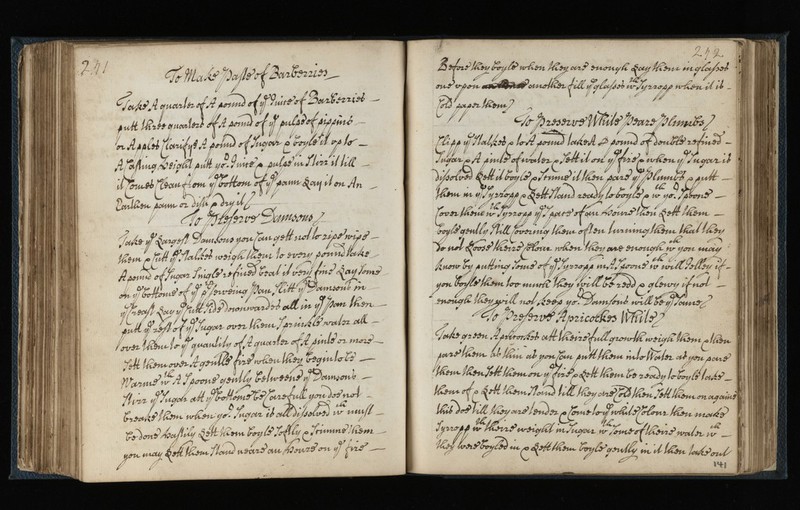 241
To Make Paste of Barberries
Take A quarter of A pound of ye Juice of Barberries
putt three quarters of A pound of ye pulpe of pippins
or Apples Clarifye A pound of Sugar & boyle it up to
A Casting height putt yor Juice & pulpe in Stirr it till
it Comes Clean from ye bottom of ye pann Lay it on An
Earthen pann or dish & dry it
To Preserve Damsons
Take ye Largest Damsons you Can gett not to ripe wipe
them & Cutt ye Stalkes weigh them to every pound take
A pound of Sugar Single refined beat it very fine Lay some
on ye bottome of ye preserving Pan, Slitt ye Damsons in
ye Creast Lay ye Cutt Side downwardes all in ye pan then
putt ye rest of ye Sugar over them Sprinkle water all
over them to ye quantity of A quarter of A pinte or more
Sett them over A gentle fire when they begin to be
Warme wth A Spoone gently betweene ye Damsons
Stirr ye Sugar att ye bottome be Carefull you doe not
breake them when yor Sugar is all dissolved wch must
be done hastily Lett them boyle Softly & Scimme them
you may Lett them Stand neare an houre on ye fire
242
Before they boyle when they are enough Lay them in glasses
one upon another fill ye glasses wth Syrropp when it is
Cold paper them
To Preserve White Peare Plumbs
Clipp ye Stalkes & to A pound take A pound of double refined
Sugar & A pinte of water & Sett it on ye fire & when ye Sugar is
dissolved Lett it boyle & Scimme it then pare ye Plumbs & putt
them in ye Syrropp & Lett Stand ready to boyle & wth yor Spoone
Cover them wth Syrropp ye Space of an houre then Lett them
boyle gently Still Covering them often turning them that they
do not Loose theire Colour when they are enough wch you may
know by putting Some of ye Syrropp in A Spoone wch will Jelley if
you boyle them too much they will be redd & glewy if not
enough they will not keep yor Damsons will be ye Same
To Preserve Apricockes White
Take green Apricockes att theire full growth weigh them & then
pare them as thin as you Can putt them into Water as you pare
them then Sett them on ye fire & Lett them be ready to boyle take
them of & Lett them Stand till they are Cold then Sett them on againe
this doe till they are tender & Come to ye white Colour then make
Syrropp wth theire weight in Sugar wth Some of theire water wch
they were boyled in & Lett them boyle gently in it then take out
141